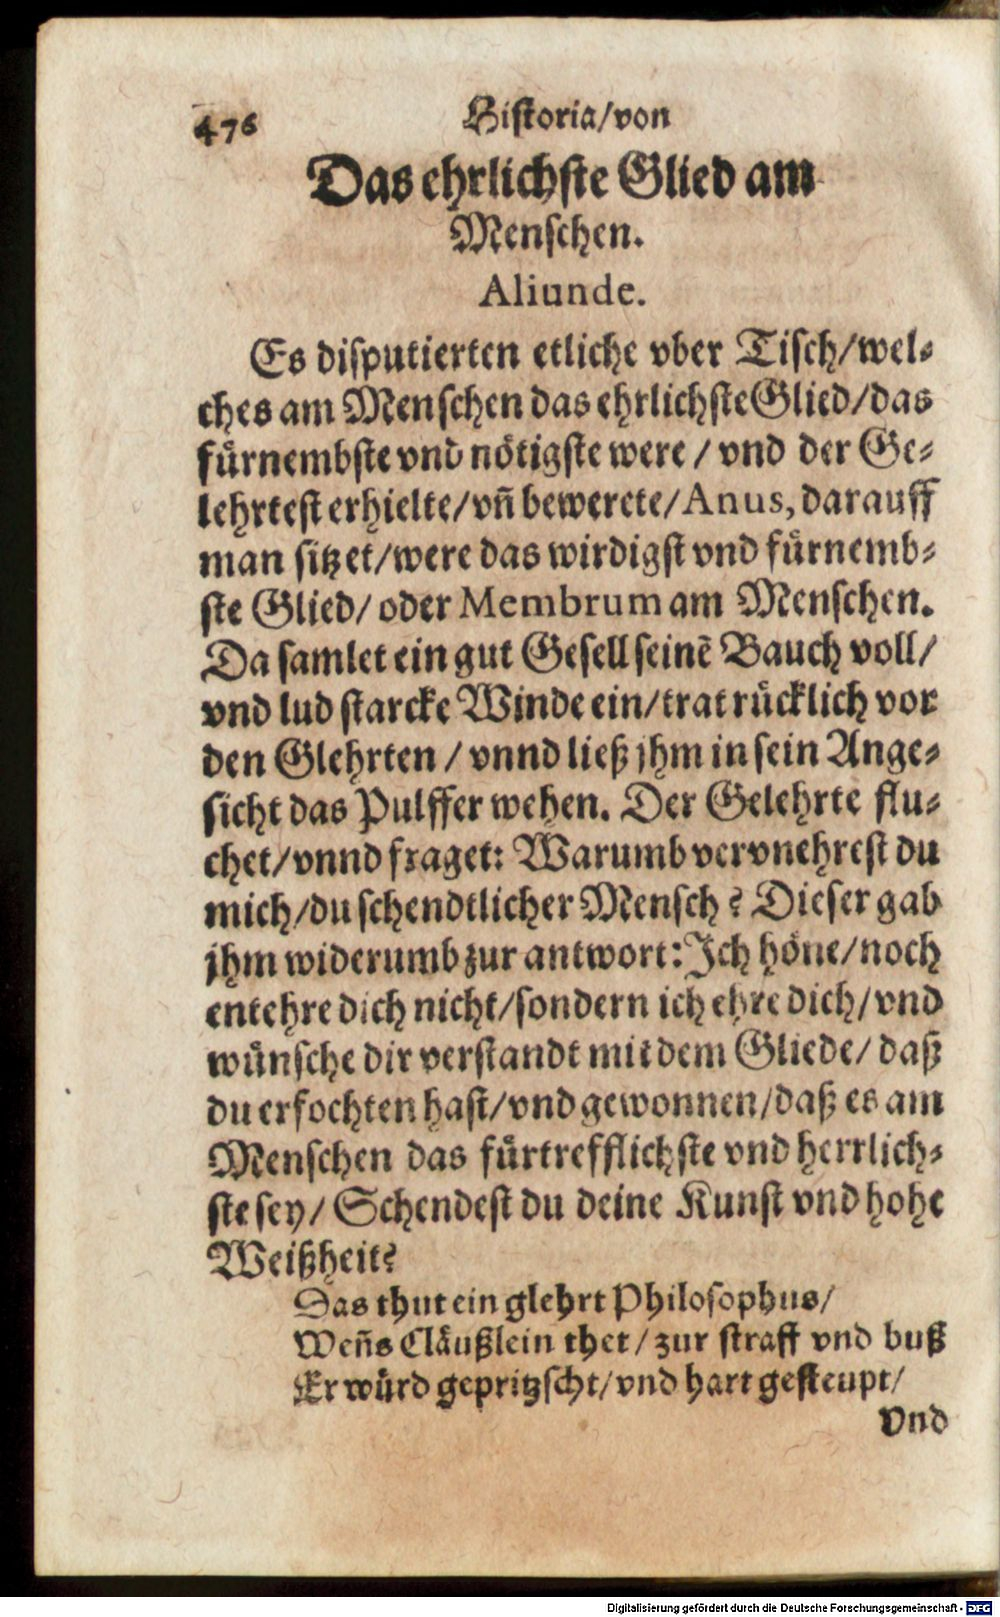 476 Historia/von
Das ehrlichste Glied am
Menschen.
Aliunde.
Es disputierten etliche vber Tisch/wel-
ches am Menschen das ehrlichste Glied/das
fürnembste vnd nötigste were / vnd der Ge-
lehrtest erhielte/vñ bewerete/Anus, darauff
man sitzet/were das wirdigst vnd fürnemb-
ste Glied/ oder Membrum am Menschen.
Da samlet ein gut Gesell seinē Bauch voll/
vnd lud starcke Winde ein/trat rücklich vor
den Glehrten / vnnd ließ jhm in sein Ange-
sicht das Pulffer wehen. Der Gelehrte flu-
chet/vnnd fraget: Warumb vervnehrest du
mich/du schendtlicher Mensch? Dieser gab
jhm widerumb zur antwort: Ich höne/noch
entehre dich nicht/sondern ich ehre dich/vnd
wünsche dir verstandt mit dem Gliede/ daß
du erfochten hast/vnd gewonnen/daß es am
Menschen das fürtrefflichste vnd herrlich-
ste sey/ Schendest du deine Kunst vnd hohe
Weißheit?
Das thut ein glehrt Philosophus/
Weñs Cläußlein thet/ zur straff vnd buß
Er würd gepritzscht/vnd hart gesteupt/
Vnd
Digitalisierung gefördert durch die Deutsche Forschungsgemeinschaft - DFG